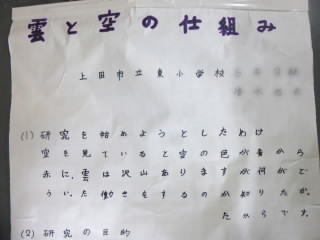 雲と空の仕組み
上田市立東小学校
(1) 研究を始めようとしたわけ
空を見ていると空の色が青から
赤に、雲は沢山ありますが何がど
ういった働きをするのか知りたか
たからです。
(2) 研究の目的